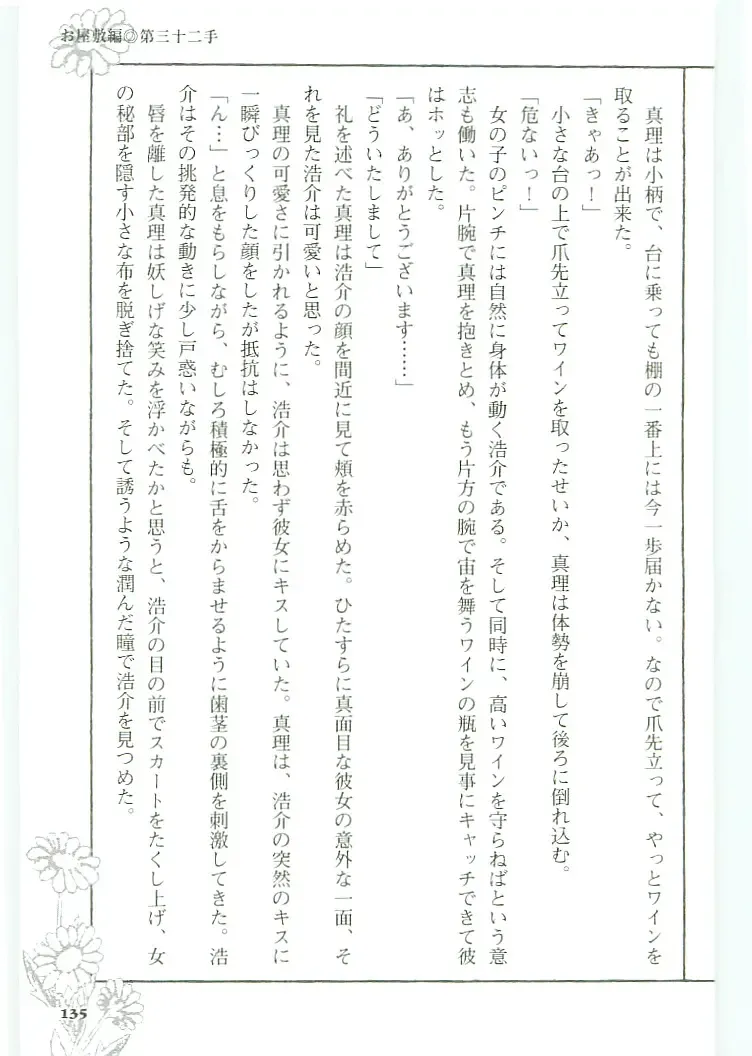 お屋敷編◎第三十二手
真理は小柄で、台に乗っても棚の一番上には今一歩届かない。なので爪先立って、やっとワインを
取ることが出来た。
「きゃあっ！」
小さな台の上で爪先立ってワインを取ったせいか、真理は体勢を崩して後ろに倒れ込む。
「危ないっ！」
女の子のピンチには自然に身体が動く浩介である。そして同時に、高いワインを守らねばという意
志も働いた。片腕で真理を抱きとめ、もう片方の腕で宙を舞うワインの瓶を見事にキャッチできて彼
はホッとした。
「あ、ありがとうございます……」
「どういたしまして」
礼を述べた真理は浩介の顔を間近に見て頬を赤らめた。ひたすらに真面目な彼女の意外な一面、そ
れを見た浩介は可愛いと思った。
真理の可愛さに引かれるように、浩介は思わず彼女にキスしていた。真理は、浩介の突然のキスに
一瞬びっくりした顔をしたが抵抗はしなかった。
「ん…」と息をもらしながら、むしろ積極的に舌をからませるように歯茎の裏側を刺激してきた。浩
介はその挑発的な動きに少し戸惑いながらも。
唇を離した真理は妖しげな笑みを浮かべたかと思うと、浩介の目の前でスカートをたくし上げ、女
の秘部を隠す小さな布を脱ぎ捨てた。そして誘うような潤んだ瞳で浩介を見つめた。
135